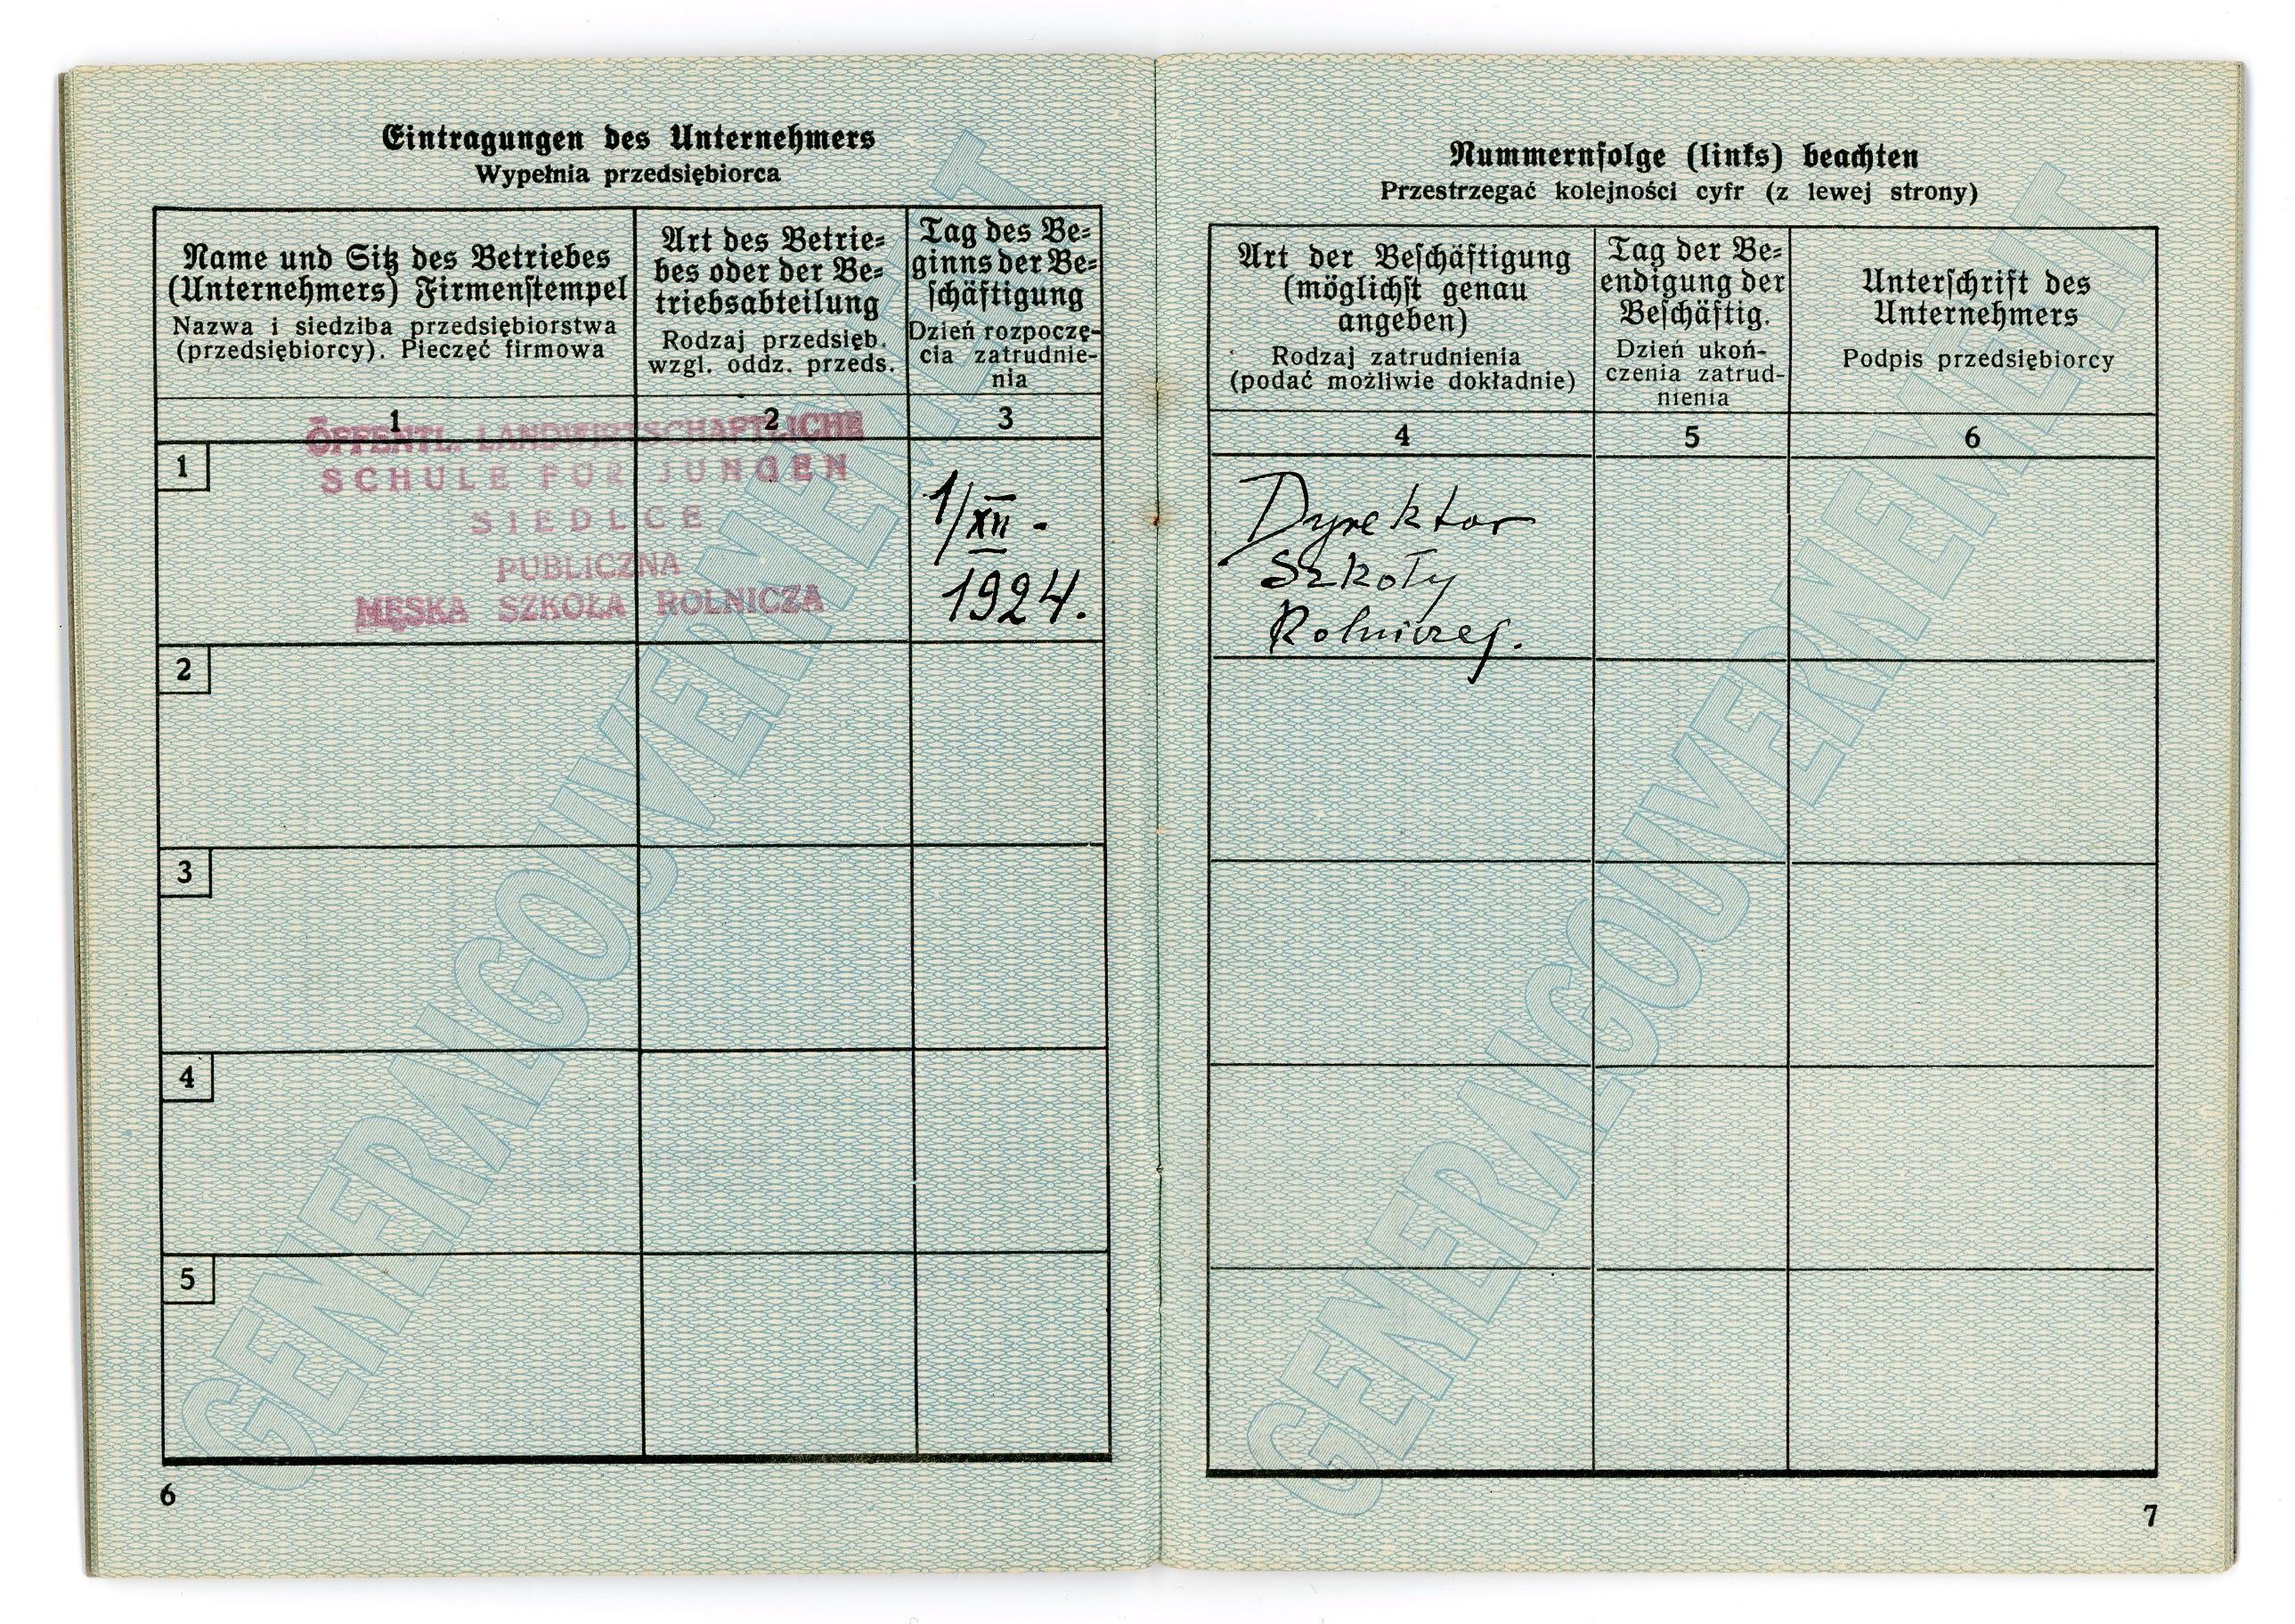 Eintragungen des Unternehmers
Wypełnia przedsiębiorca
Name und Sitz des Betriebes
(Unternehmers) Firmenstempel
Nazwa i siedziba przedsiębiorstwa
(przedsiębiorcy). Pieczęć firmowa
Art des Betrie=
bes oder der Be=
triebsabteilung
Rodzaj przedsięb.
wzgl. oddz. przeds.
Tag des Be=
ginns der Be=
schäftigung
Dzień rozpoczę-
cia zatrudnie-
nia
1
2
3
1
ÖFFENTL. LANDWIRTSCHAFTLICHE
SCHULE FÜR JUNGEN
SIEDLCE
PUBLICZNA
MĘSKA SZKOŁA ROLNICZA
1/XII -
1924.
2
3
4
5
GENERALGOUVERNEMENT
6
Nummernfolge (links) beachten
Przestrzegać kolejności cyfr (z lewej strony)
Art der Beschäftigung
(möglichst genau
angeben)
Rodzaj zatrudnienia
(podać możliwie dokładnie)
Tag der Be=
endigung der
Beschäftig.
Dzień ukoń-
czenia zatrud-
nienia
Unterschrift des
Unternehmers
Podpis przedsiębiorcy
4
5
6
Dyrektor
Szkoły
Rolniczej.
GENERALGOUVERNEMENT
7